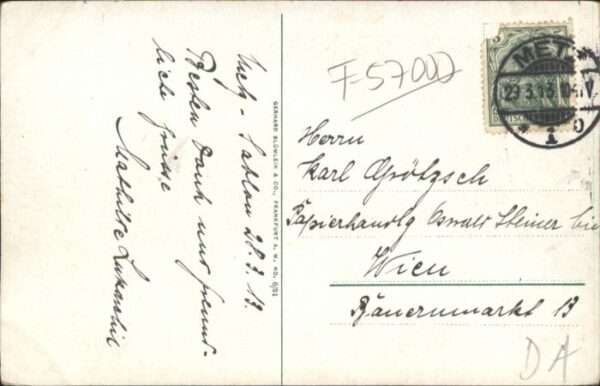 Metz-Sablon 28.3.13.
Besten Dank und freund-
liche Grüsse
Mathilde
GERHARD BLÜMLEIN & CO., FRANKFURT A. M. NO.
F-57000
METZ
29.3.13. 10-11V.
* 1 o
Herrn
Karl Grötzsch
Papierhandlg Oswald Steiner bei
Wien
Bauernmarkt 13
DA